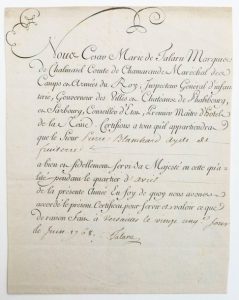 Nous Cesar Marie de Talaru Marquis
de Chalmazel Comte de Chamarande Marechal des
Camps en Armées du Roy, Inspecteur General d'infan
terie, Gouverneur des Villes en Chateaux de Phalsbourg
en Sarbourg, Conseiller d'Etat, Premier Maitre d'hotel
de la Reine Certifions a tous qu'il appartiendra
que le Sieur Pierre Blanchard ayde de
fruiterie
a bien en fidellement servi Sa Majesté en cette qua
lité pendant le quartier d'avril
de la presente Année En foy de quoy nous avons
accordé le present Certificat pour servir et valoir ce que
de raison Fait a Versailles le vingt cinq Jour
de Juin
Talaru